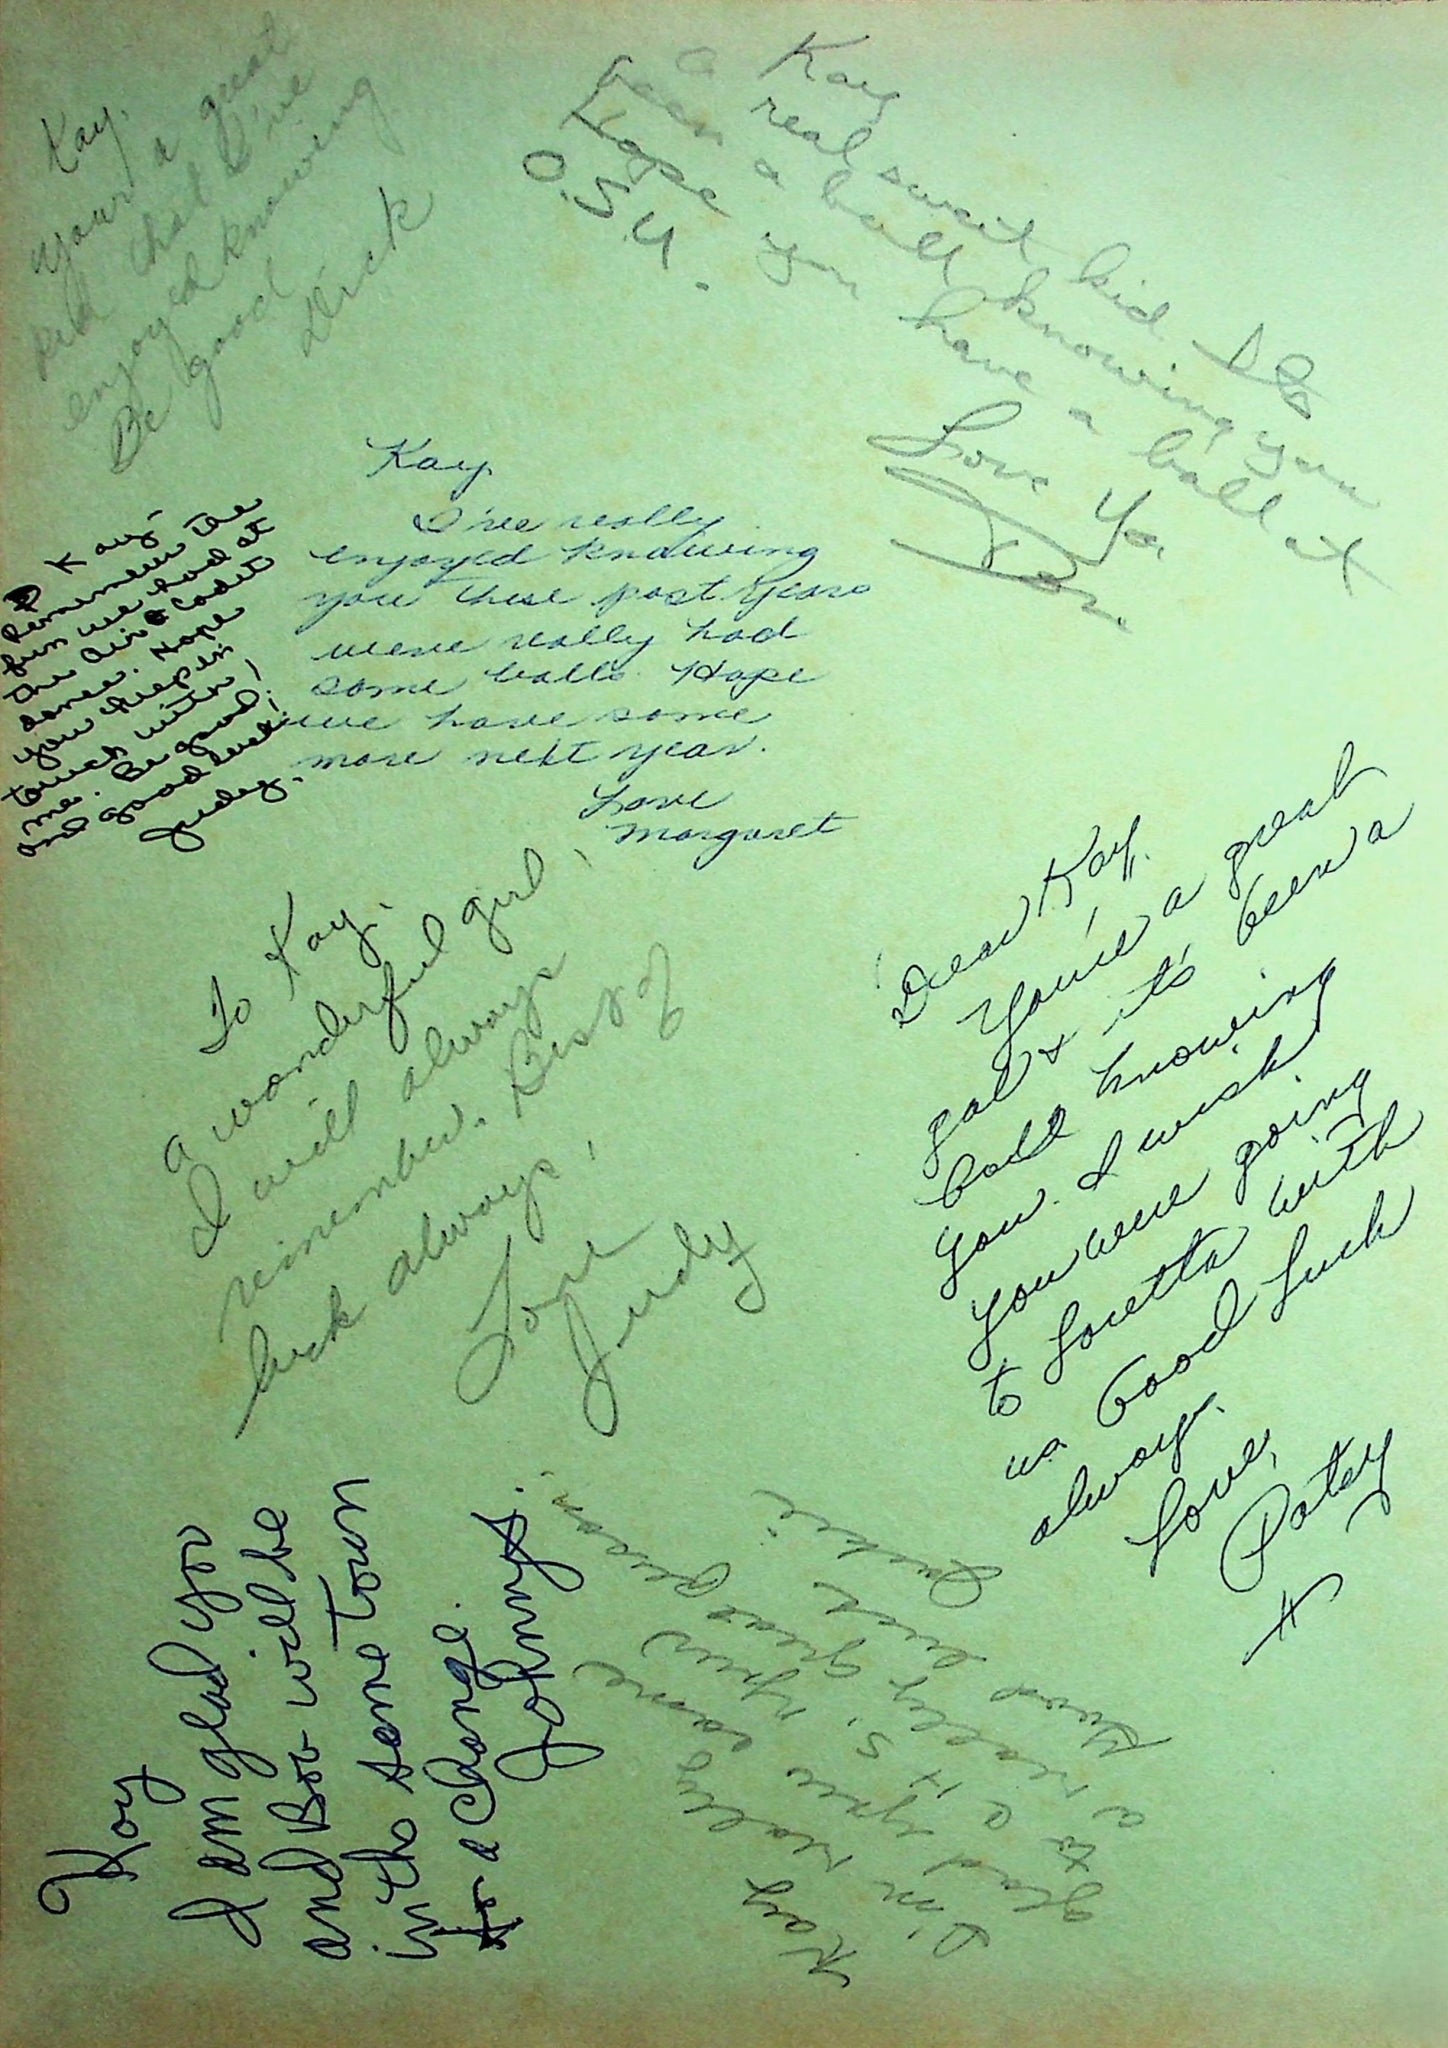 Kay,
your a great
kid that I've
enjoyed knowing
Be good
Dick
Kay
a real sweet kid. It's
been a ball knowing you
Hope you have a ball at
O.S.U.
Love Ya,
Kay-
Remember the
fun we had at
the Air Cadet
dance. Hope
you keep in
touch with
me. Be good!
and good luck!
Judy.
Kay,
I've really
enjoyed knowing
you these past years
weve really had
some balls. Hope
we have some
more next year.
Love
Margaret
To Kay,
a wonderful girl,
I will always
remember. Best of
luck always,
Love
Judy
Dear Kay,
You're a great
gal & it's been a
ball knowing
you. I wish
you were going
to Loretto with
us. Good Luck
always.
Love,
Patsy
Kay
I am glad you
and Bov will be
in the same town
for a change.
Johnny S.
Kay
I'm really
glad you came
to C.H.S. Your
a really great person.
Good luck